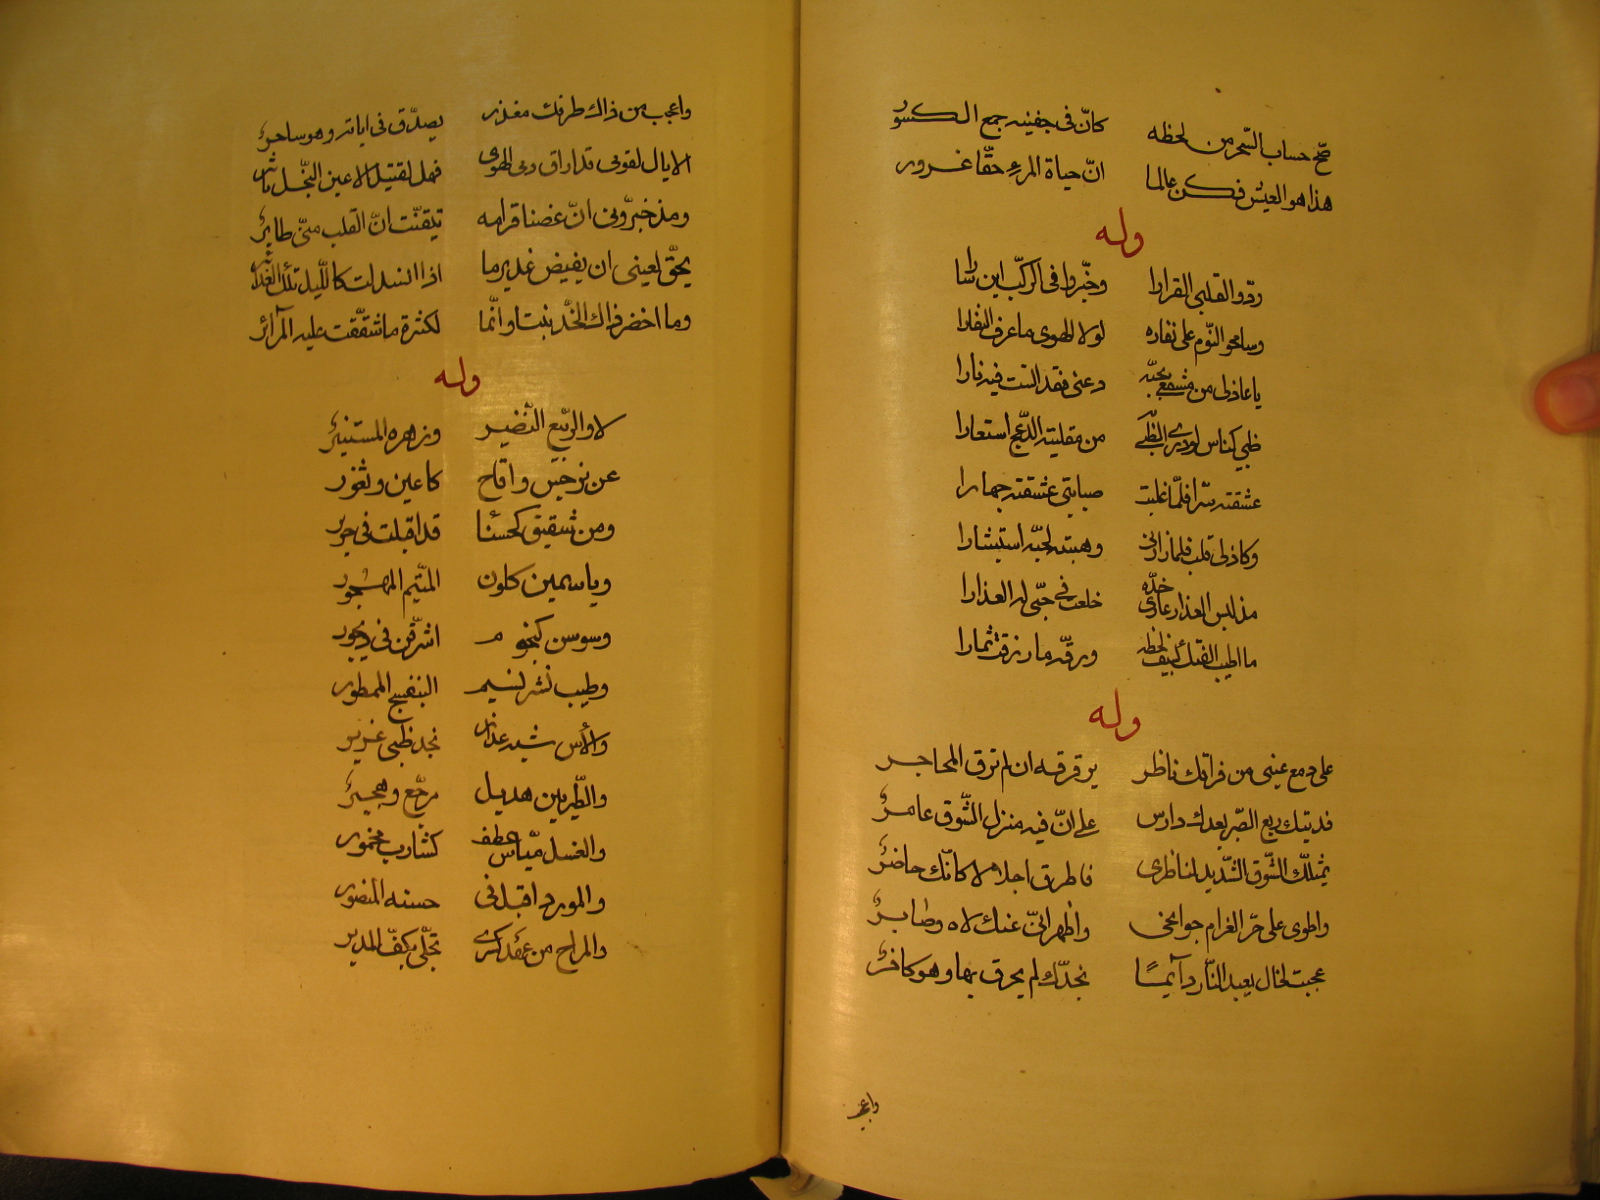 صحّ حساب السّحر من لحظه كانّ فى جفنيه جمع الكسور
هذا هو العيش فكن عالما انّ حياة المرء حقّا غرور
وله
ردّوا لقلبى القرارا وخبّروا فى الركب اين سارا
وسامحوا النّوم على نفاره لولا الهوى ما عرف النفارا
يا عاذلى من بحبّه دعنى فقد انست فيه نارا
ظبي كناس لو درى الظّبي من مقلتيه الدّعج استعارا
عشقته سرّا فلمّا غلبت صبابتى عشقته جهارا
وكان لى قلب فلما زارنى وهبته لحبّه استبشارا
مذ لبس العذار عارى خدّه خلعت في حبّى له العذارا
ما اطيب الفتك بسيف لحظه ورقّه ما
وله
على دمع عينى من فراقك ناظر يرقرقه ان لم ترق المحاجر
فديتك ربع الصّبر بعدك دارس على انّ فيه منزل الشّوق عامر
يمثلك الشّوق الشّديد لناظرى فاطرق اجلالا كانّك حاضر
واطوى على حرّ الغرام جوانحى واظهر انّى عنك لاه وصابر
عجبت لخال يعبد النّار دآئمًا بخدّك لم يحرق بها وهو كافر
واعجب
واعجب من ذاك طرفك منذر يصدّق فى اياته وهو ساحر
الا يال لقومى قد اراق دمى الهوى فهل لقتيل الاعين النّجل ثائر
ومذ خبّرونى انّ غصنا قوامه تيقّنت انّ القلب منّى طاير
يحقّ لعينى ان يفيض غديرها اذا انسدلت كاللّيل تلك الغدائر
وما اخضر ذاك الخدّ نبتا وانّما لكثرة ما شقّقت عليه المرآئر
وله
لا والرّبيع النّضير وزهره المستنير
عن نرجس واقاح كاعين وثغور
ومن شقيق كحسنا قد اقبلت فى حرير
وياسمين كلون المتيّم المهجور
وسوسن كنجوم اشرقن فى ديجور
وطيب نشر نسيم البنفسج الممطور
والآس شبه عذار بخد ظبى غرير
والطّير بين هديل مرجّع وهدير
والغصن ميّاس عطف كشارب مخمور
والورد اقبل فى حسنه المنصور
والراح من عهد كسرى تجلى بكفّ المدير